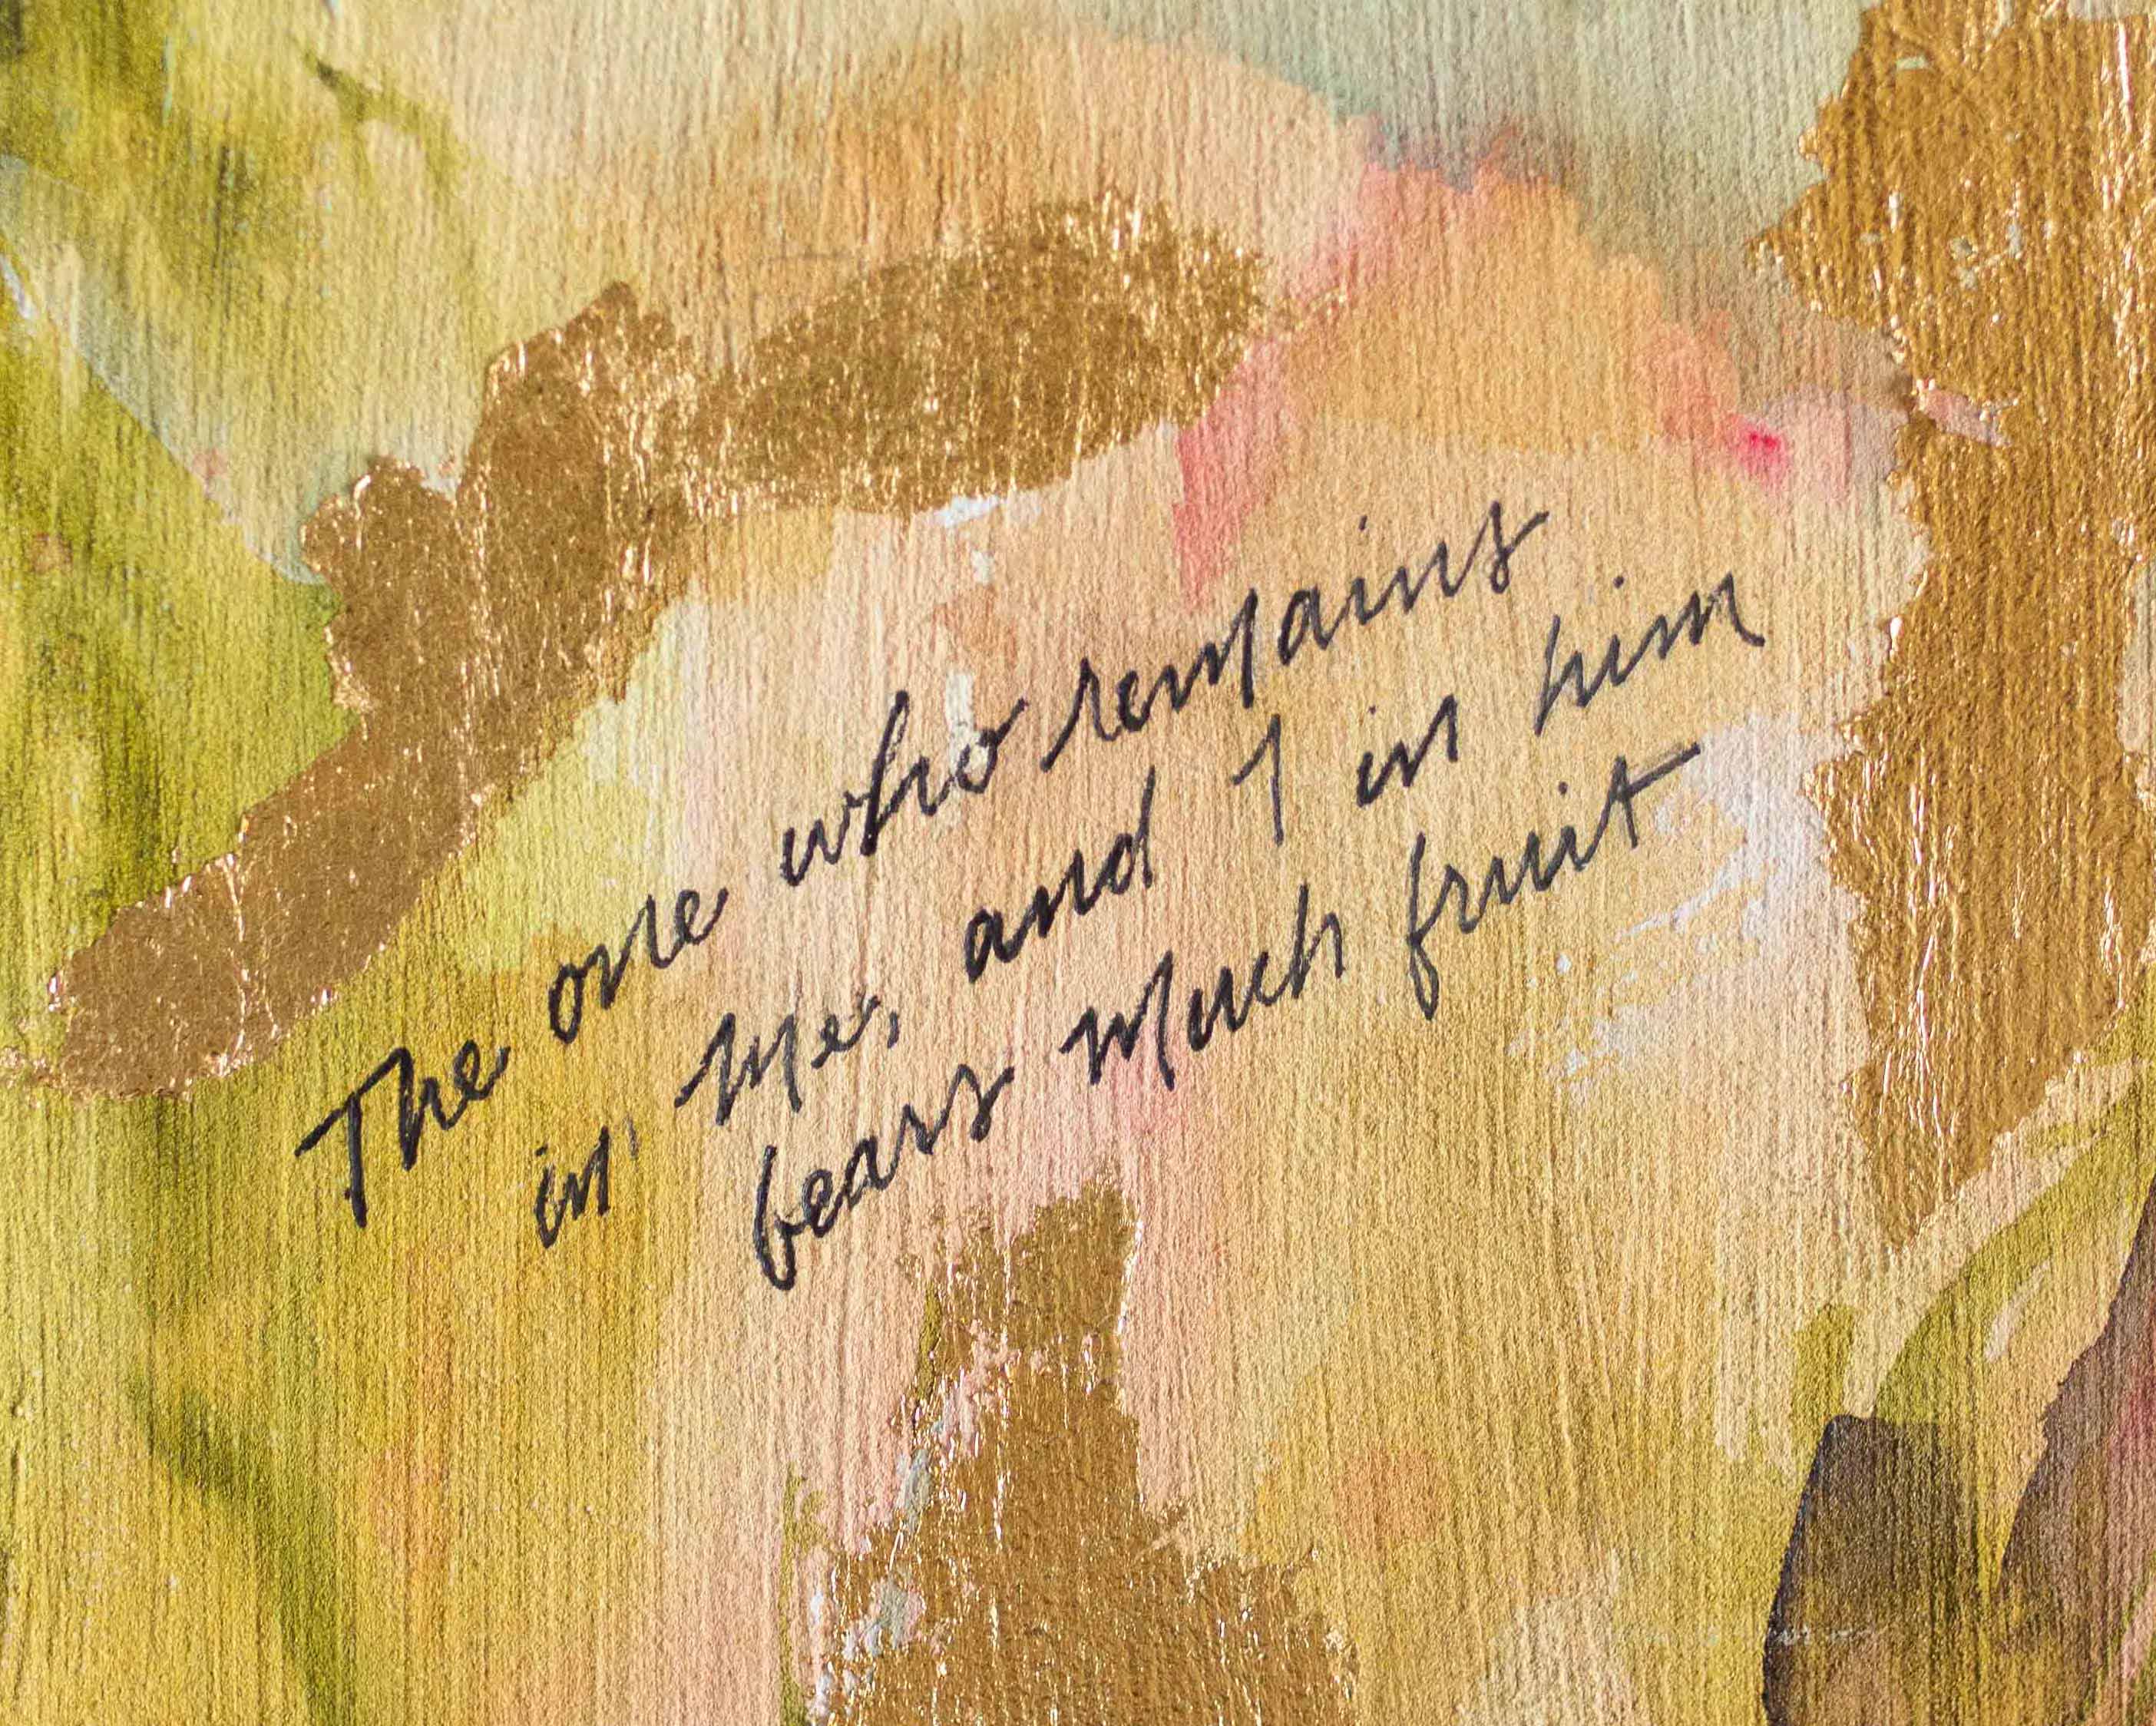 The one who remains
in me, and I in him
bears much fruit